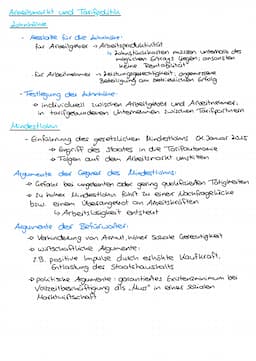 Arbeitsmarkt und Tarifpolitik
Lohnhöhe
- Ansätze für die Lohnhöhe:
für Arbeitgeber → Arbeitsproduktivität
↳ Lohnstückkosten müssen unterhalb des
möglichen Ertrags liegen, ansonsten
keine Rentabilität
für Arbeitnehmer → Leistungsgerechtigkeit, angemessene
Beteiligung am betrieblichen Erfolg
- Festlegung der Lohnhöhe:
→ individuell zwischen Arbeitgeber und Arbeitnehmer,
in tarifgebundenen Unternehmen zwischen Tarifpartnern
Mindestlohn
- Einführung des gesetzlichen Mindestlohns 01. Januar 2015
→ Eingriff des Staates in die Tarifautonomie
→ Folgen auf dem Arbeitsmarkt umstritten
Argumente der Gegner des Mindestlohns:
→ Gefahr bei ungelernten oder gering qualifizierten Tätigkeiten
→ zu hoher Mindestlohn führt zu einer Nachfragelücke
bzw. einem Überangebot an Arbeitskräften
↳ Arbeitslosigkeit entsteht
Argumente der Befürworter:
→ Verhinderung von Armut, höhere soziale Gerechtigkeit
→ wirtschaftliche Argumente:
z.B. positive Impulse durch erhöhte Kaufkraft,
Entlastung des Staatshaushalts
→ politische Argumente: garantiertes Existenzminimum bei
Vollzeitbeschäftigung als „Muss" in einer sozialen
Marktwirtschaft